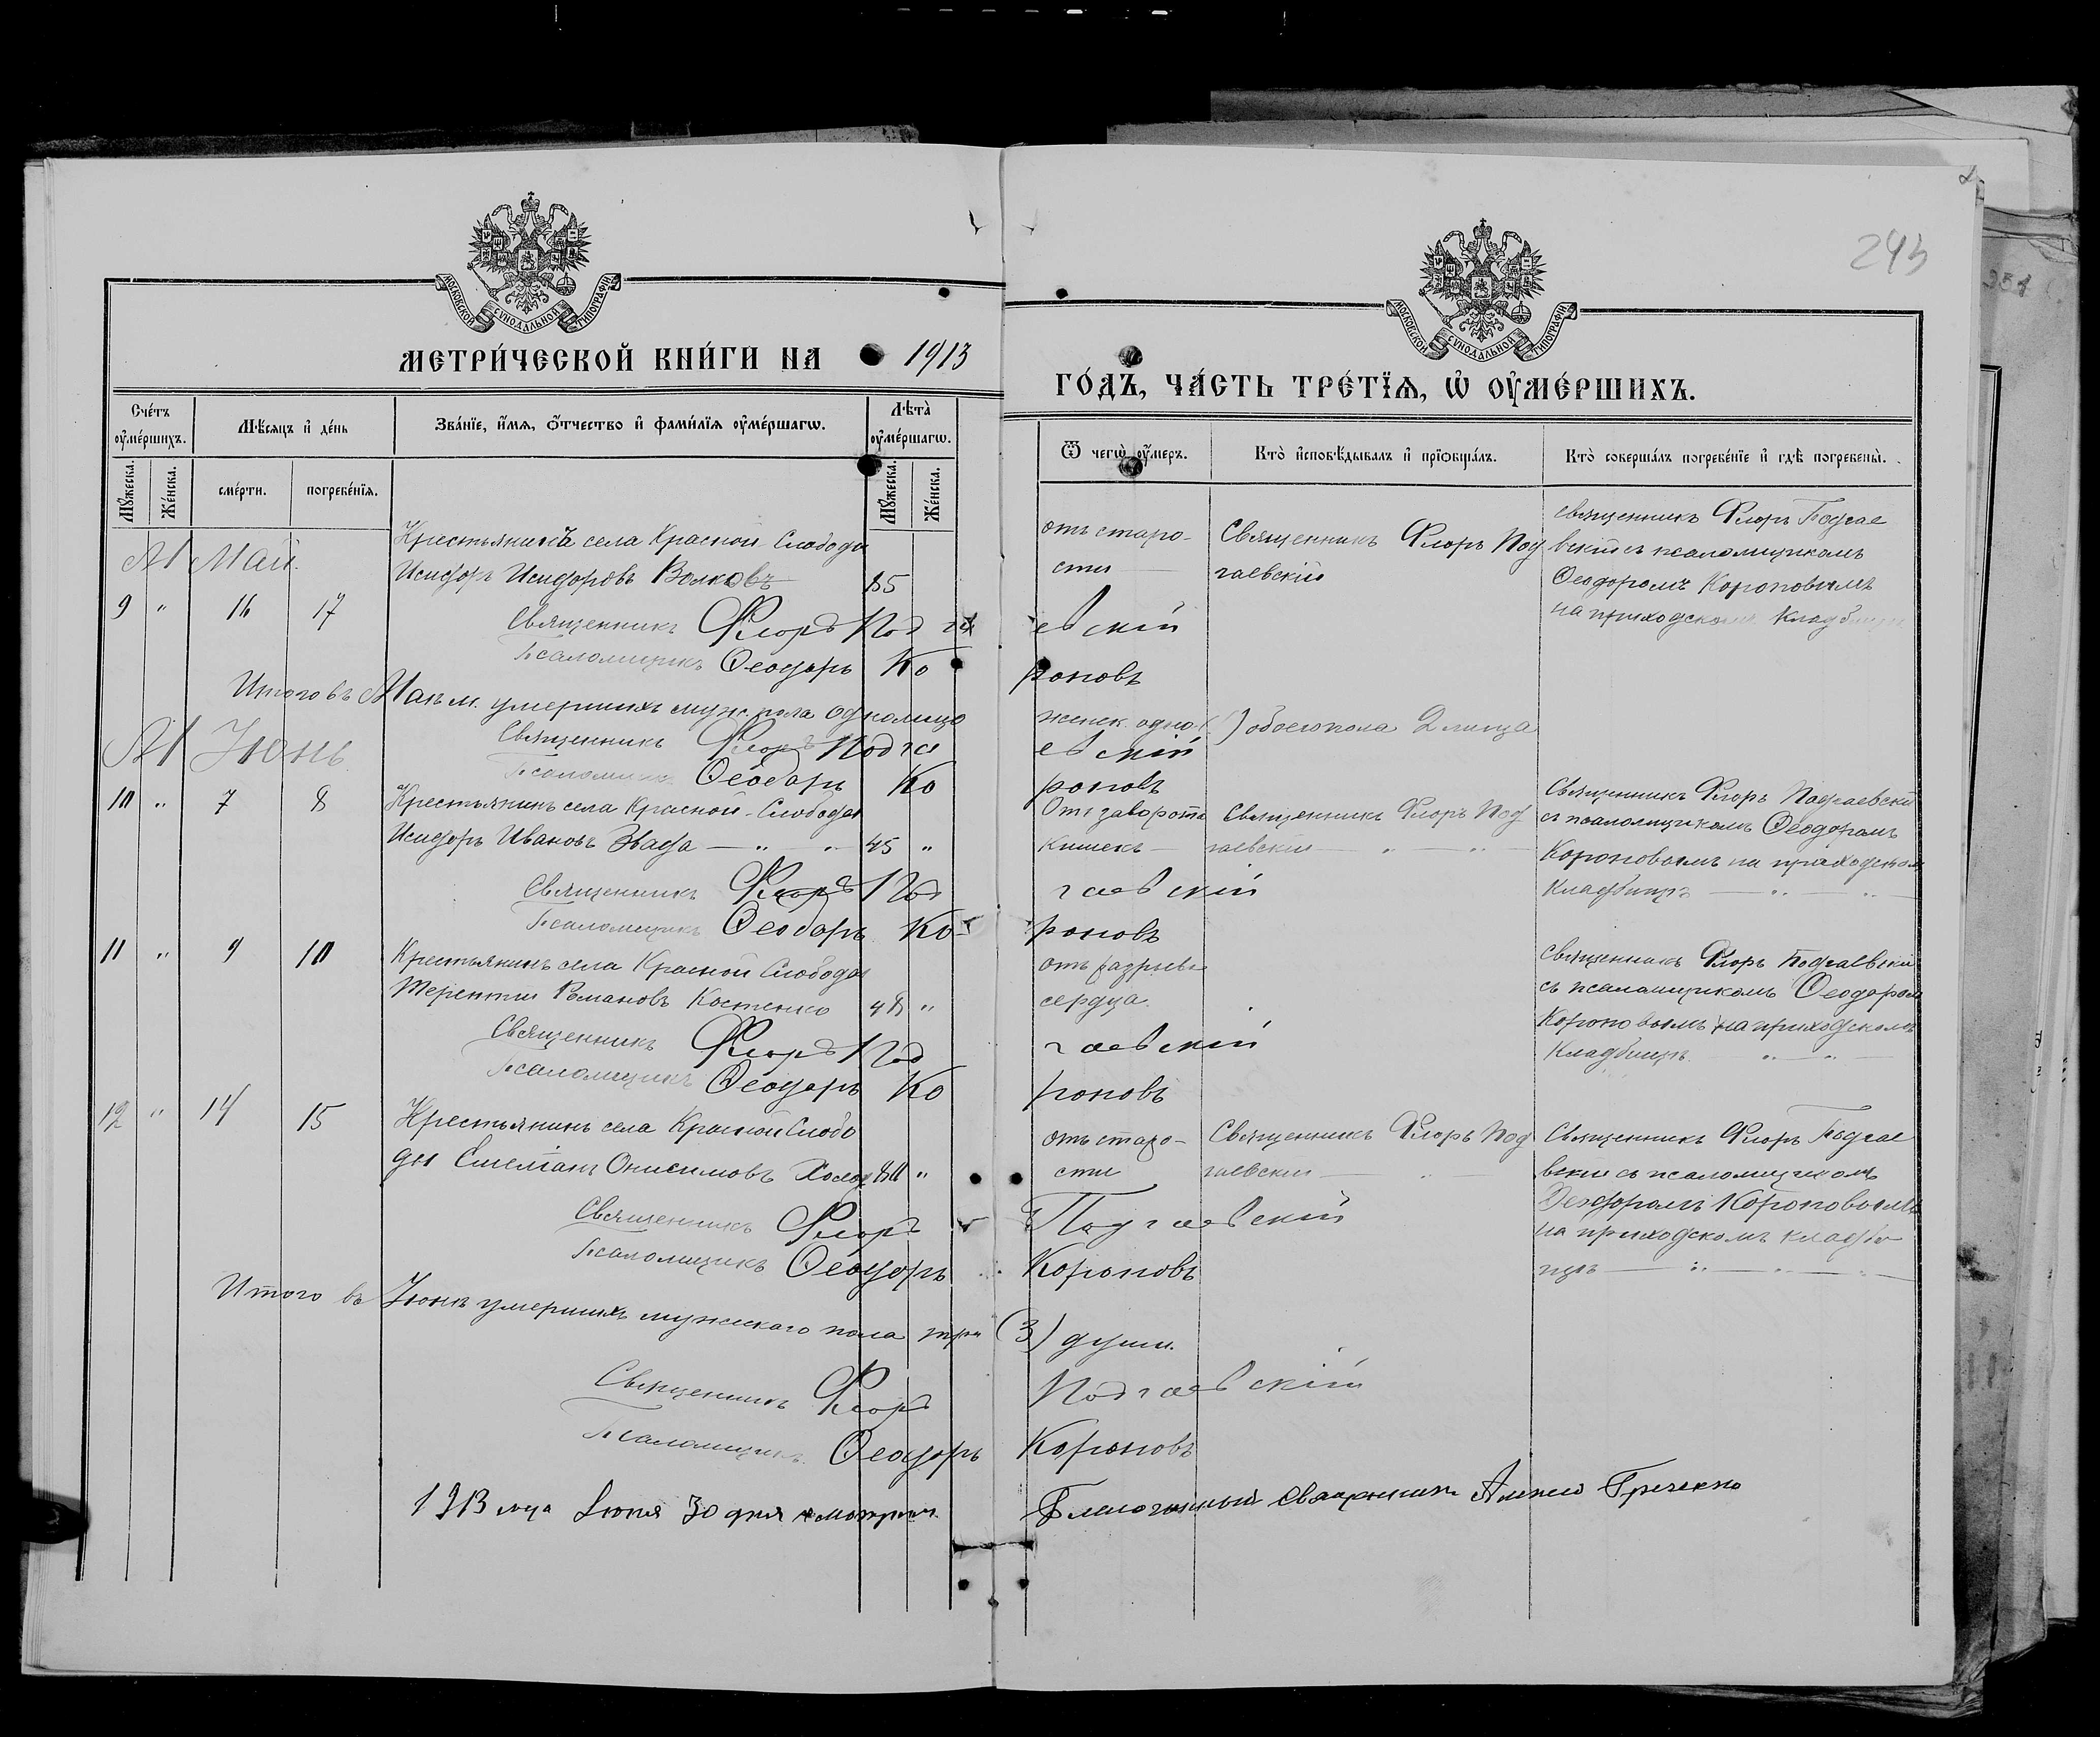 243
МОСКОВСКОЙ СѴНОДАЛЬНОЙ ТИПОГРАФІИ
МОСКОВСКОЙ СѴНОДАЛЬНОЙ ТИПОГРАФІИ
МЕТРИ́ЧЕСКОЙ КНИ́ГИ НА 1913
ГО́ДЪ, ЧА́СТЬ ТРЕ́ТЇѦ, Ѡ҆ ОУ҆МЕ́РШИХЪ.
Сче́тъ оу҆ме́ршихъ.
Мѣ́сяцъ и҆ де́нь
Зва́нїе, и҆́мѧ, ѻ҆́тчество и҆ фами́лїѧ оу҆ме́ршагѡ.
Лѣ́та оу҆ме́ршагѡ.
Ѿ чегѡ̀ оу҆́меръ.
Кто̀ и҆сповѣ́дывалъ и҆ прїѡбща́лъ.
Кто̀ соверша́лъ погребе́нїе и҆ гдѣ̀ погребены̀.
Мꙋ́жеска.
Же́нска.
сме́рти.
погребе́нїѧ.
Мꙋ́жеска.
Же́нска.
М Май.
9 " 16 17
Крестьянинъ села Красной-Слободы
Исидоръ Исидоровъ Волковъ 85
отъ старо-
сти
Священникъ Флоръ Под
гаевский
священникъ Флоръ Подгае
вскій съ псаломщикомъ
Ѳеодоромъ Короповымъ
на приходскомъ Кладбищѣ
Священникъ Флоръ Подгаевскій
Псаломщикъ Ѳеодоръ Короповъ
Итого въ Маѣ м. умершихъ муж. пола одно лицо женск. одно (1) обоего пола 2 лица
Священникъ Флоръ Подгаевскій
Псаломщикъ Ѳеодоръ Короповъ
М Іюнь
10 " 7 8
Крестьянинъ села Красной-Слободы
Исидоръ Ивановъ 45 "
Отъ заворота
кишекъ
Священникъ Флоръ Под
гаевский
Священникъ Флоръ Подгаевскі
съ псаломщикомъ Ѳеодоромъ
Короповымъ на приходском
Кладбищѣ
Священникъ Флоръ Подгаевскій
Псаломщикъ Ѳеодоръ Короповъ
11 " 9 10
Крестьянинъ села Красной Слободы
Терентий Романовъ Костенко 48 "
отъ разрыва
сердца.
Священникъ Флоръ Подгаевскій
съ псаломщикомъ Ѳеодором
Короповымъ на приходскомъ
Кладбищѣ
Священникъ Флоръ Подгаевскій
Псаломщикъ Ѳеодоръ Короповъ
12 " 14 15
Крестьянинъ села Красной Слобо
ды Емеліанъ Онисимовъ Холод 80 "
отъ старо-
сти
Священникъ Флоръ Под
гаевский
Священникъ Флоръ Подгае
вский съ псаломщикомъ
Ѳеодоромъ Короповымъ
на приходскомъ кладби
щѣ
Священникъ Флоръ Подгаевскій
Псаломщикъ Ѳеодоръ Короповъ
Итого въ Іюнѣ умершихъ мужескаго пола три (3) души.
Священникъ Флоръ Подгаевскій
Псаломщикъ Ѳеодоръ Короповъ
1913 года Іюня 30 дня смотрѣлъ. Благочинный Священникъ Алексій Греченко